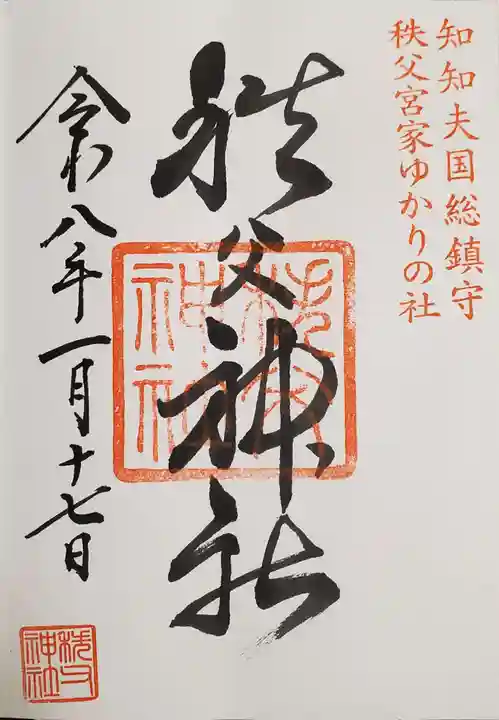 知知夫国総鎮守
秩父宮家ゆかりの社
秩父神社
令和八年一月十七日
秩父神社
秩父神社